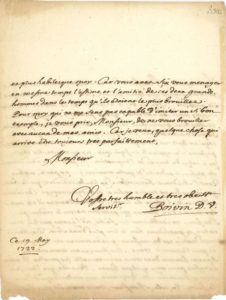 et plus habile que moy. Car vous avez sçu vous menager
en mesme temps l'estime et l'amitié de ces deux grands
hommes dans les temps qu'ils étoient le plus brouillez.
Pour moy qui ne me sens pas capable d'imiter un si bon
exemple, je vous prie, Monsieur, de ne me brouiller
avec aucun de mes amis. Car je veux, quelque chose qui
arrive être toujours tres parfaitement,
Monsieur
Vostre tres humble et tres obeisst
servitr
Boivin D. V.
Ce 19 May
1722